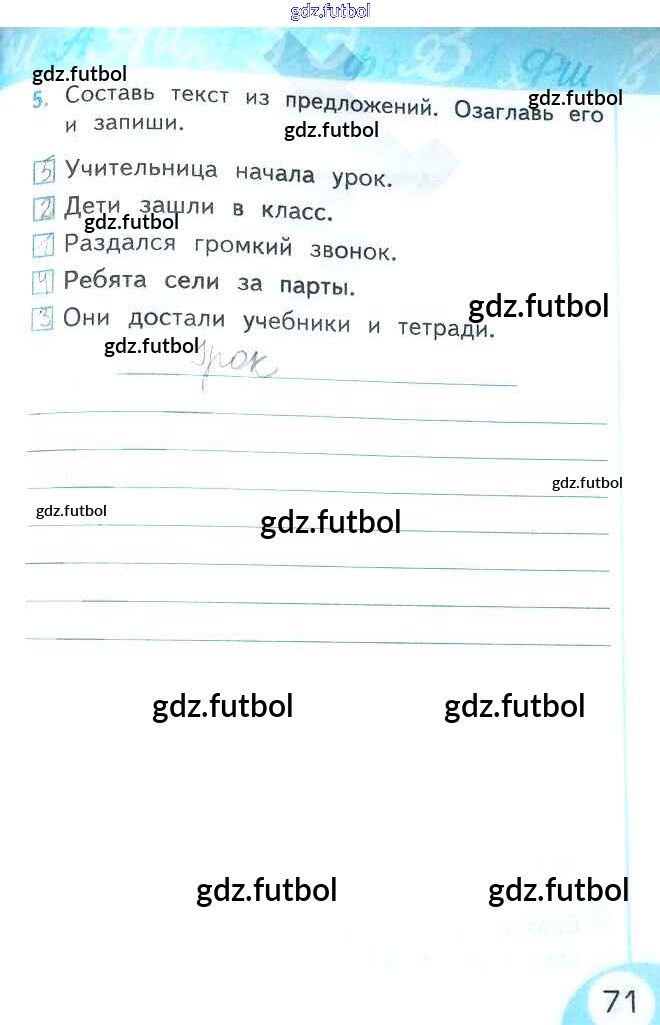 gdz.futbol
gdz.futbol
5. Составь текст из предложений. Озаглавь его
gdz.futbol
и запиши.
gdz.futbol
5 Учительница начала урок.
2 Дети зашли в класс.
gdz.futbol
1 Раздался громкий звонок.
4 Ребята сели за парты.
gdz.futbol
3 Они достали учебники и тетради.
gdz.futbol
Урок
gdz.futbol
gdz.futbol
gdz.futbol
gdz.futbol
gdz.futbol
gdz.futbol
gdz.futbol
71